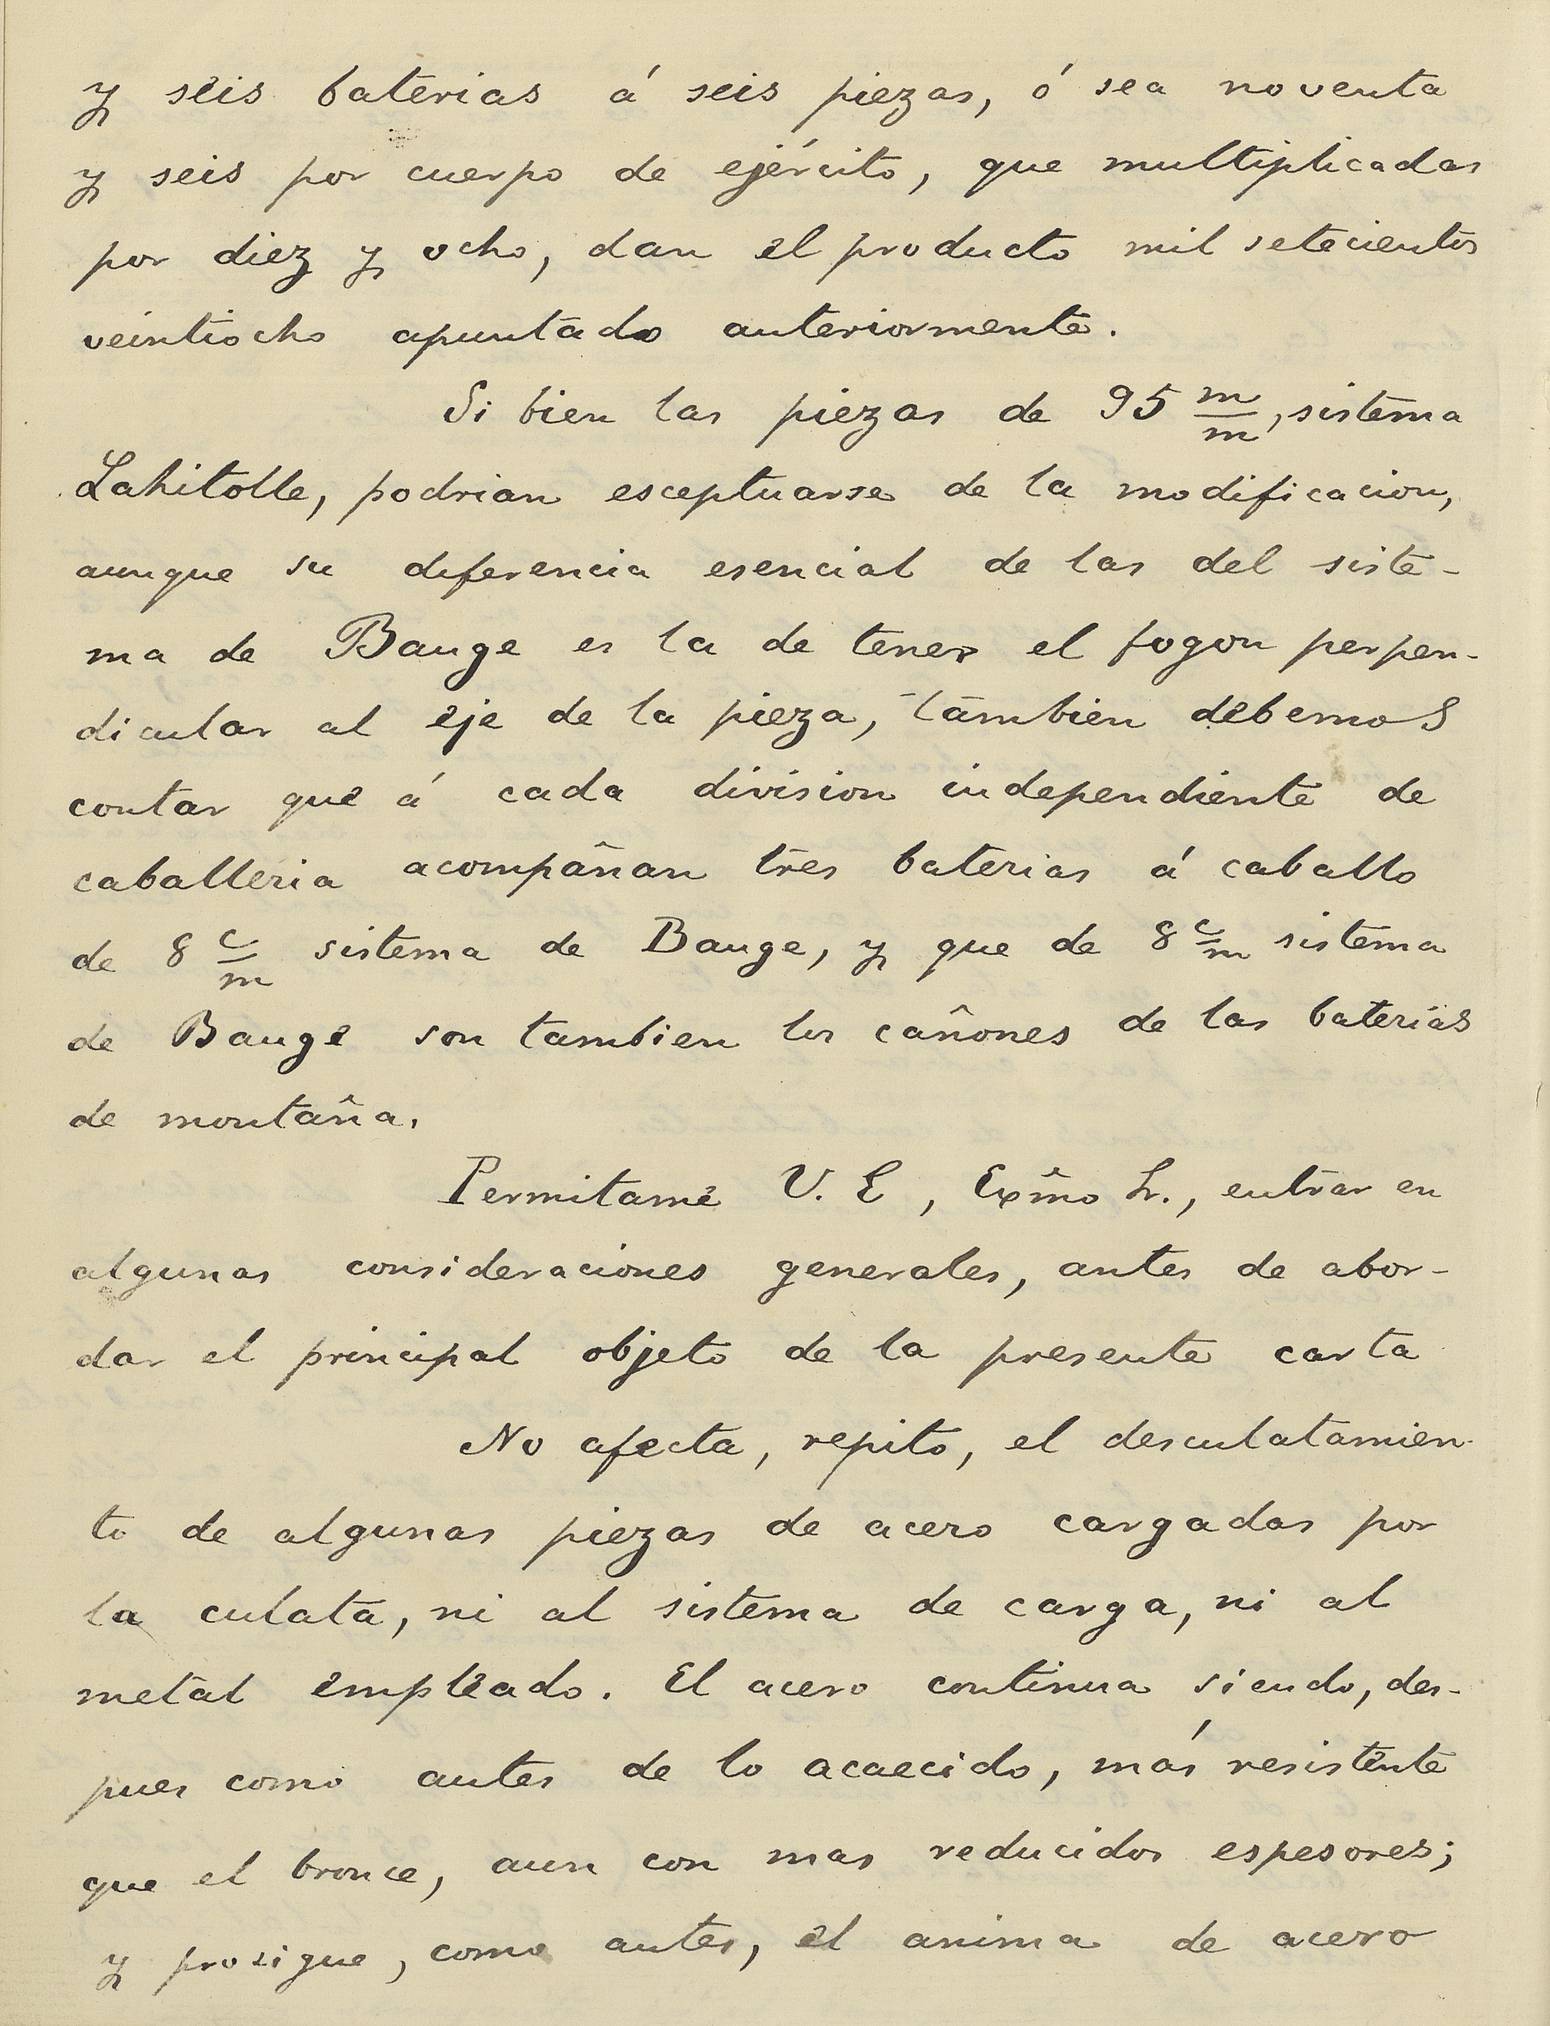 y seis baterias á seis piezas, ó sea noventa
y seis por cuerpo de ejército, que multiplicadas
por diez y ocho, dan el producto mil setecientos
veintiocho apuntado anteriormente.
Si bien las piezas de 95 m/m, sistema
Lahitolle, podrian esceptuarse de la modificacion,
aunque su diferencia esencial de las del siste-
ma de Bange es la de tener el fogon perpen-
dicular al eje de la pieza, tambien debemos
contar que á cada division independiente de
caballeria acompañan tres baterias á caballo
de 8 c/m sistema de Bange, y que de 8 c/m sistema
de Bange son tambien los cañones de las baterias
de montaña.
Permitame V. E, Exm̃o Sr., entrar en
algunas consideraciones generales, antes de abor-
dar el principal objeto de la presente carta
No afecta, repito, el desculatamien-
to de algunas piezas de acero cargadas por
la culata, ni al sistema de carga, ni al
metal empleado. El acero continua siendo, des-
pues como antes de lo acaecido, más resistente
que el bronce, aun con mas reducidos espesores;
y prosigue, como antes, el anima de acero